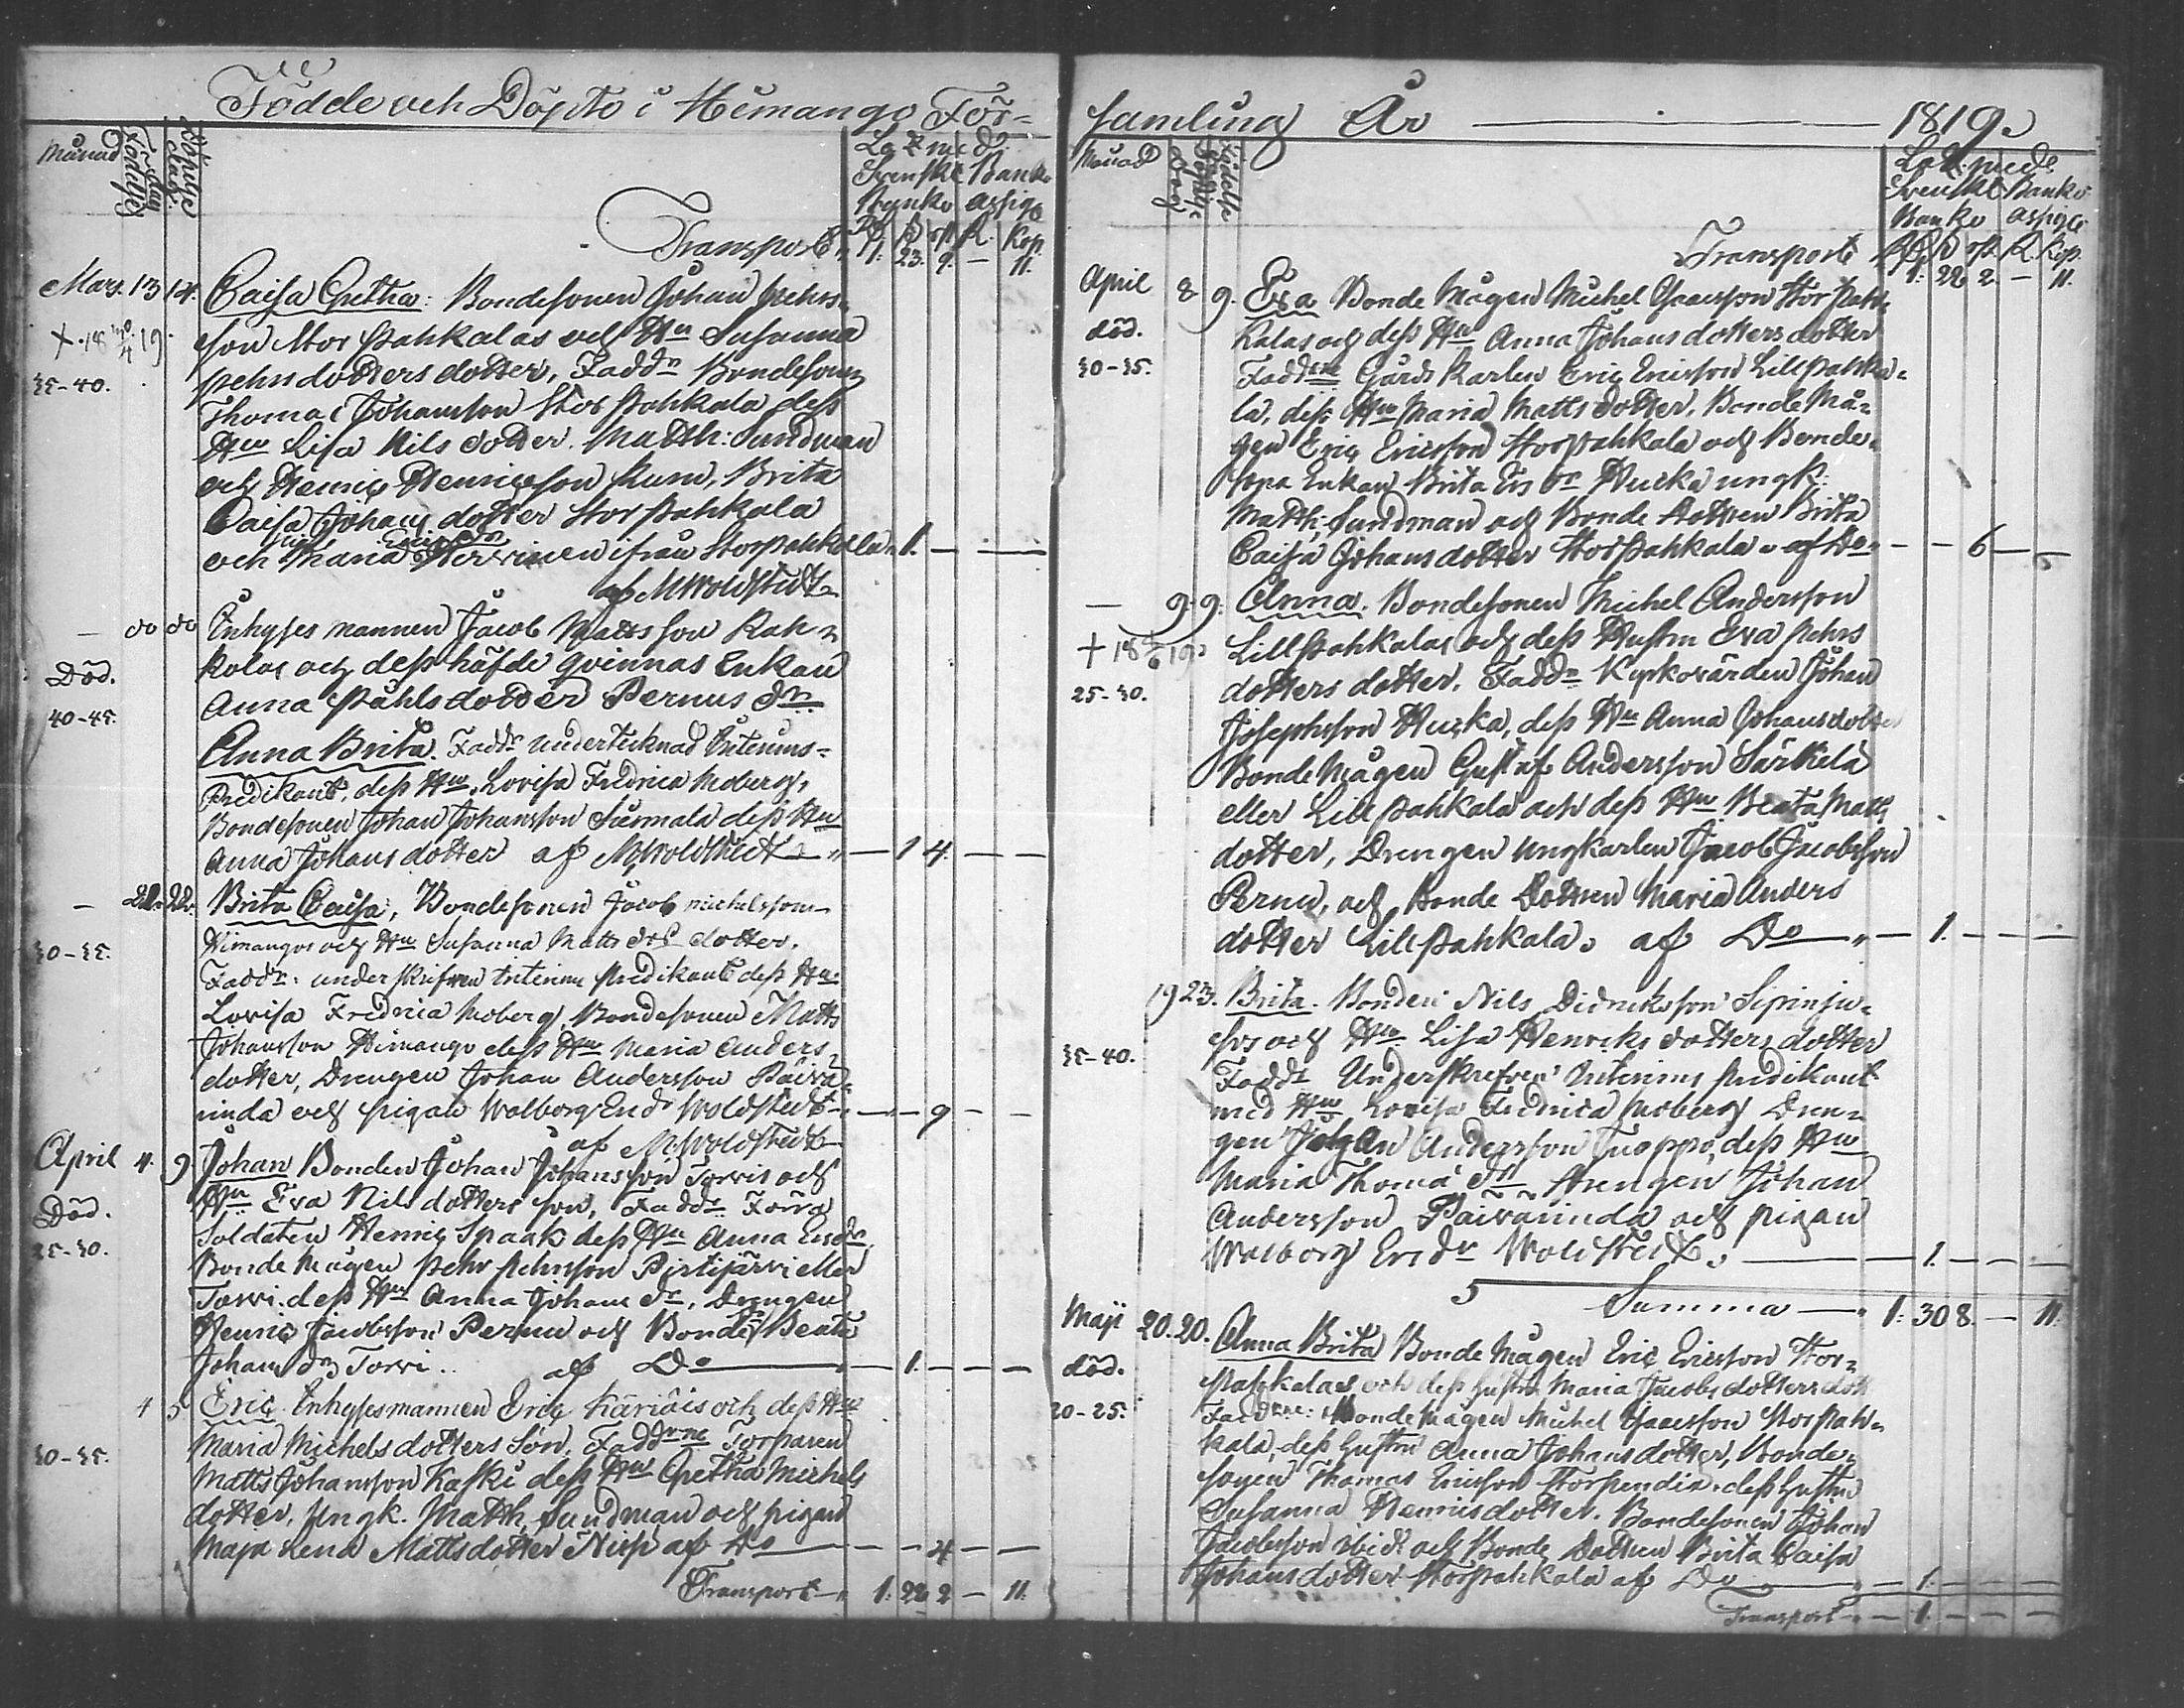 Födde och Döpte i Himango För-
Månad Födelse dag Döpelse dag
Svenske Banko
Transport 1: 23. 9. — 11.
Mars. 13 14. Caisa Gretha: Bondesonen Johan Pehrs-
+ 18 30/4 19. son Stor Pahkalas och Hu Susanna
35-40. Pehrsdotters dotter, Faddr Bondesonen
Thomas Johansson Stor Pahkala dess
Hu Lisa Nils dotter. Matth: Sundman
och Henric Henricsson Rum, Brita
Caisa Johans dotter Storpahkala
och Maria Ericsdr ifrån Storpahkala 1. — —
af MWoldstedt
— do do Inhyses mannen Jacob Matts son Rah-
Död. kolas och dess häfde qvinnas Enkan
40-45. Anna Påhlsdotter Pernus dr
Anna Brita. Faddr undertecknad Interims-
Predikant, dess Hu Lovisa Fredrica Moberg,
Bondesonen Johan Johansson Surmala dess Hu
Anna Johans dotter af MWoldstedt — 1 4. — —
— 22. Brita Caisa, Bondesonen Jacob Michelsson
30-35. Himangos och Hu Susanna Matts dotter.
Faddr: underskrifven Interims predikant dess Hu
Lovisa Fredrica Moberg, Bondesonen Matts
Johansson Himango dess Hu Maria Anders
dotter, Drengen Johan Andersson Päivä-
rinda och pigan Walborg Ersdr Woldstedt — — 9 — —
af MWoldstedt
April 4. 9 Johan Bonden Johan Johansson Torvis och
Död. Hu Eva Nils dotters son, Faddr Förra
25-30. Soldaten Henric Spaak dess Hu Anna Ersdr
Bonde Mågen Pehr Pehrsson Pirtijärvi eller
Torvi dess Hu Anna Johans dr, Drengen
Henric Jacobsson Pernu och Bonde dr Beata
Johans dr Torvi. af Do — 1. — — —
4 5 Eric Inhysesmannen Eric Kariäis och dess Hu
30-35. Maria Michels dotters Son. Faddrne Torparen
Matts Johansson Kaski dess Hu Gretha Michels
dotter, Ungk. Matth. Sundman och pigan
Maja Lena Mattsdotter Nisp af Do — — 4 — —
Transport 1: 22 2 — 11.
samling År — 1819.
Månad
Svenske Banko
Transport 1: 22 2. — 11.
April 8 9. Eva Bonde Mågen Michel Isacsson Stor Pah-
död. kalas och dess Hu Anna Johans dotters dotter
30-35. Faddrne Gårds Karlen Eric Ericsson Lill Pahka-
la, dess Hu Maria Matts dotter. Bonde Må-
gen Eric Ericsson Storpahkala och Bonde-
Enkan Brita Ers dr Hurka ungk:
Matth: Sundman och Bonde dottren Brita
Caisa Johans dotter Storpahkala af Do — — 6 — —
— 9. 9. Anna. Bondesonen Michel Andersson
Lillpahkalas och dess Hustru Eva Pehrs
25-30. dotters dotter. Faddr Kyrkovärden Johan
Josephsson Hurka, dess Hu Anna Johansdotter
Bonde Mågen Gustaf Andersson Särkelä
eller Lill Pahkala och dess Hu Beata Matts
dotter, Drengen ungkarlen Jacob Jacobsson
Pernu, och Bonde Dottren Maria Anders
dotter Lillpahkala. af Do — 1. — — —
19 23. Brita. Bonden Nils Didricksson Siprinju-
sos och Hu Lisa Henriks dotters dotter
35-40. Faddr Underskrefven Interims predikant
med Hu Lovisa Fredrica Moberg Dren-
gen Johan Andersson Juoppo, dess Hu
Maria Thomæ dr Drengen Johan
Andersson Päivärinda och pigan
Walborg Ersdr Woldstedt. — 1. — — —
Summa — 1: 30 8. — 11.
Maji 20. 20. Anna Brita Bonde Mågen Eric Ericsson Stor-
död. pahkalas och dess hustru Maria Jacobs dotters dott
20-25. Faddrne: Bonde Mågen Michel Isacsson Storpah-
kala, dess hustru Anna Johans dotter, Bonde-
sonen Thomas Ericsson dess hustru
Susanna Henricsdotter. Bondesonen Johan
Jacobsson ibid: och Bonde Dottren Brita Caisa
Johans dotter Storpahkala af Do — 1. — — —
Transport — 1. — — —